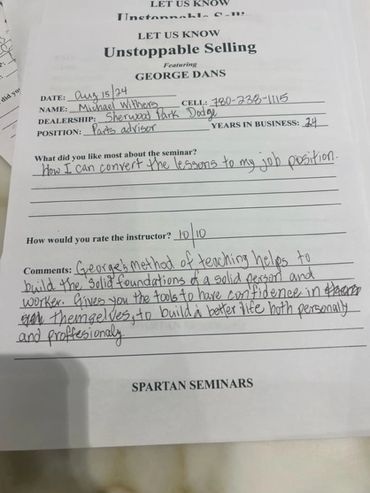 LET US KNOW
LET US KNOW
Unstoppable Selling
Featuring
GEORGE DANS
DATE: Aug 15/24
NAME: Michael Withers CELL: 780-238-1115
DEALERSHIP: Sherwood Park Dodge
POSITION: Parts advisor YEARS IN BUSINESS: 24
What did you like most about the seminar?
How I can convert the lessons to my job position.
How would you rate the instructor? 10/10
Comments: George's method of teaching helps to
build the solid foundations of a solid person and
worker. Gives you the tools to have confidence in
themselves, to build a better life both personally
and proffesionaly
SPARTAN SEMINARS